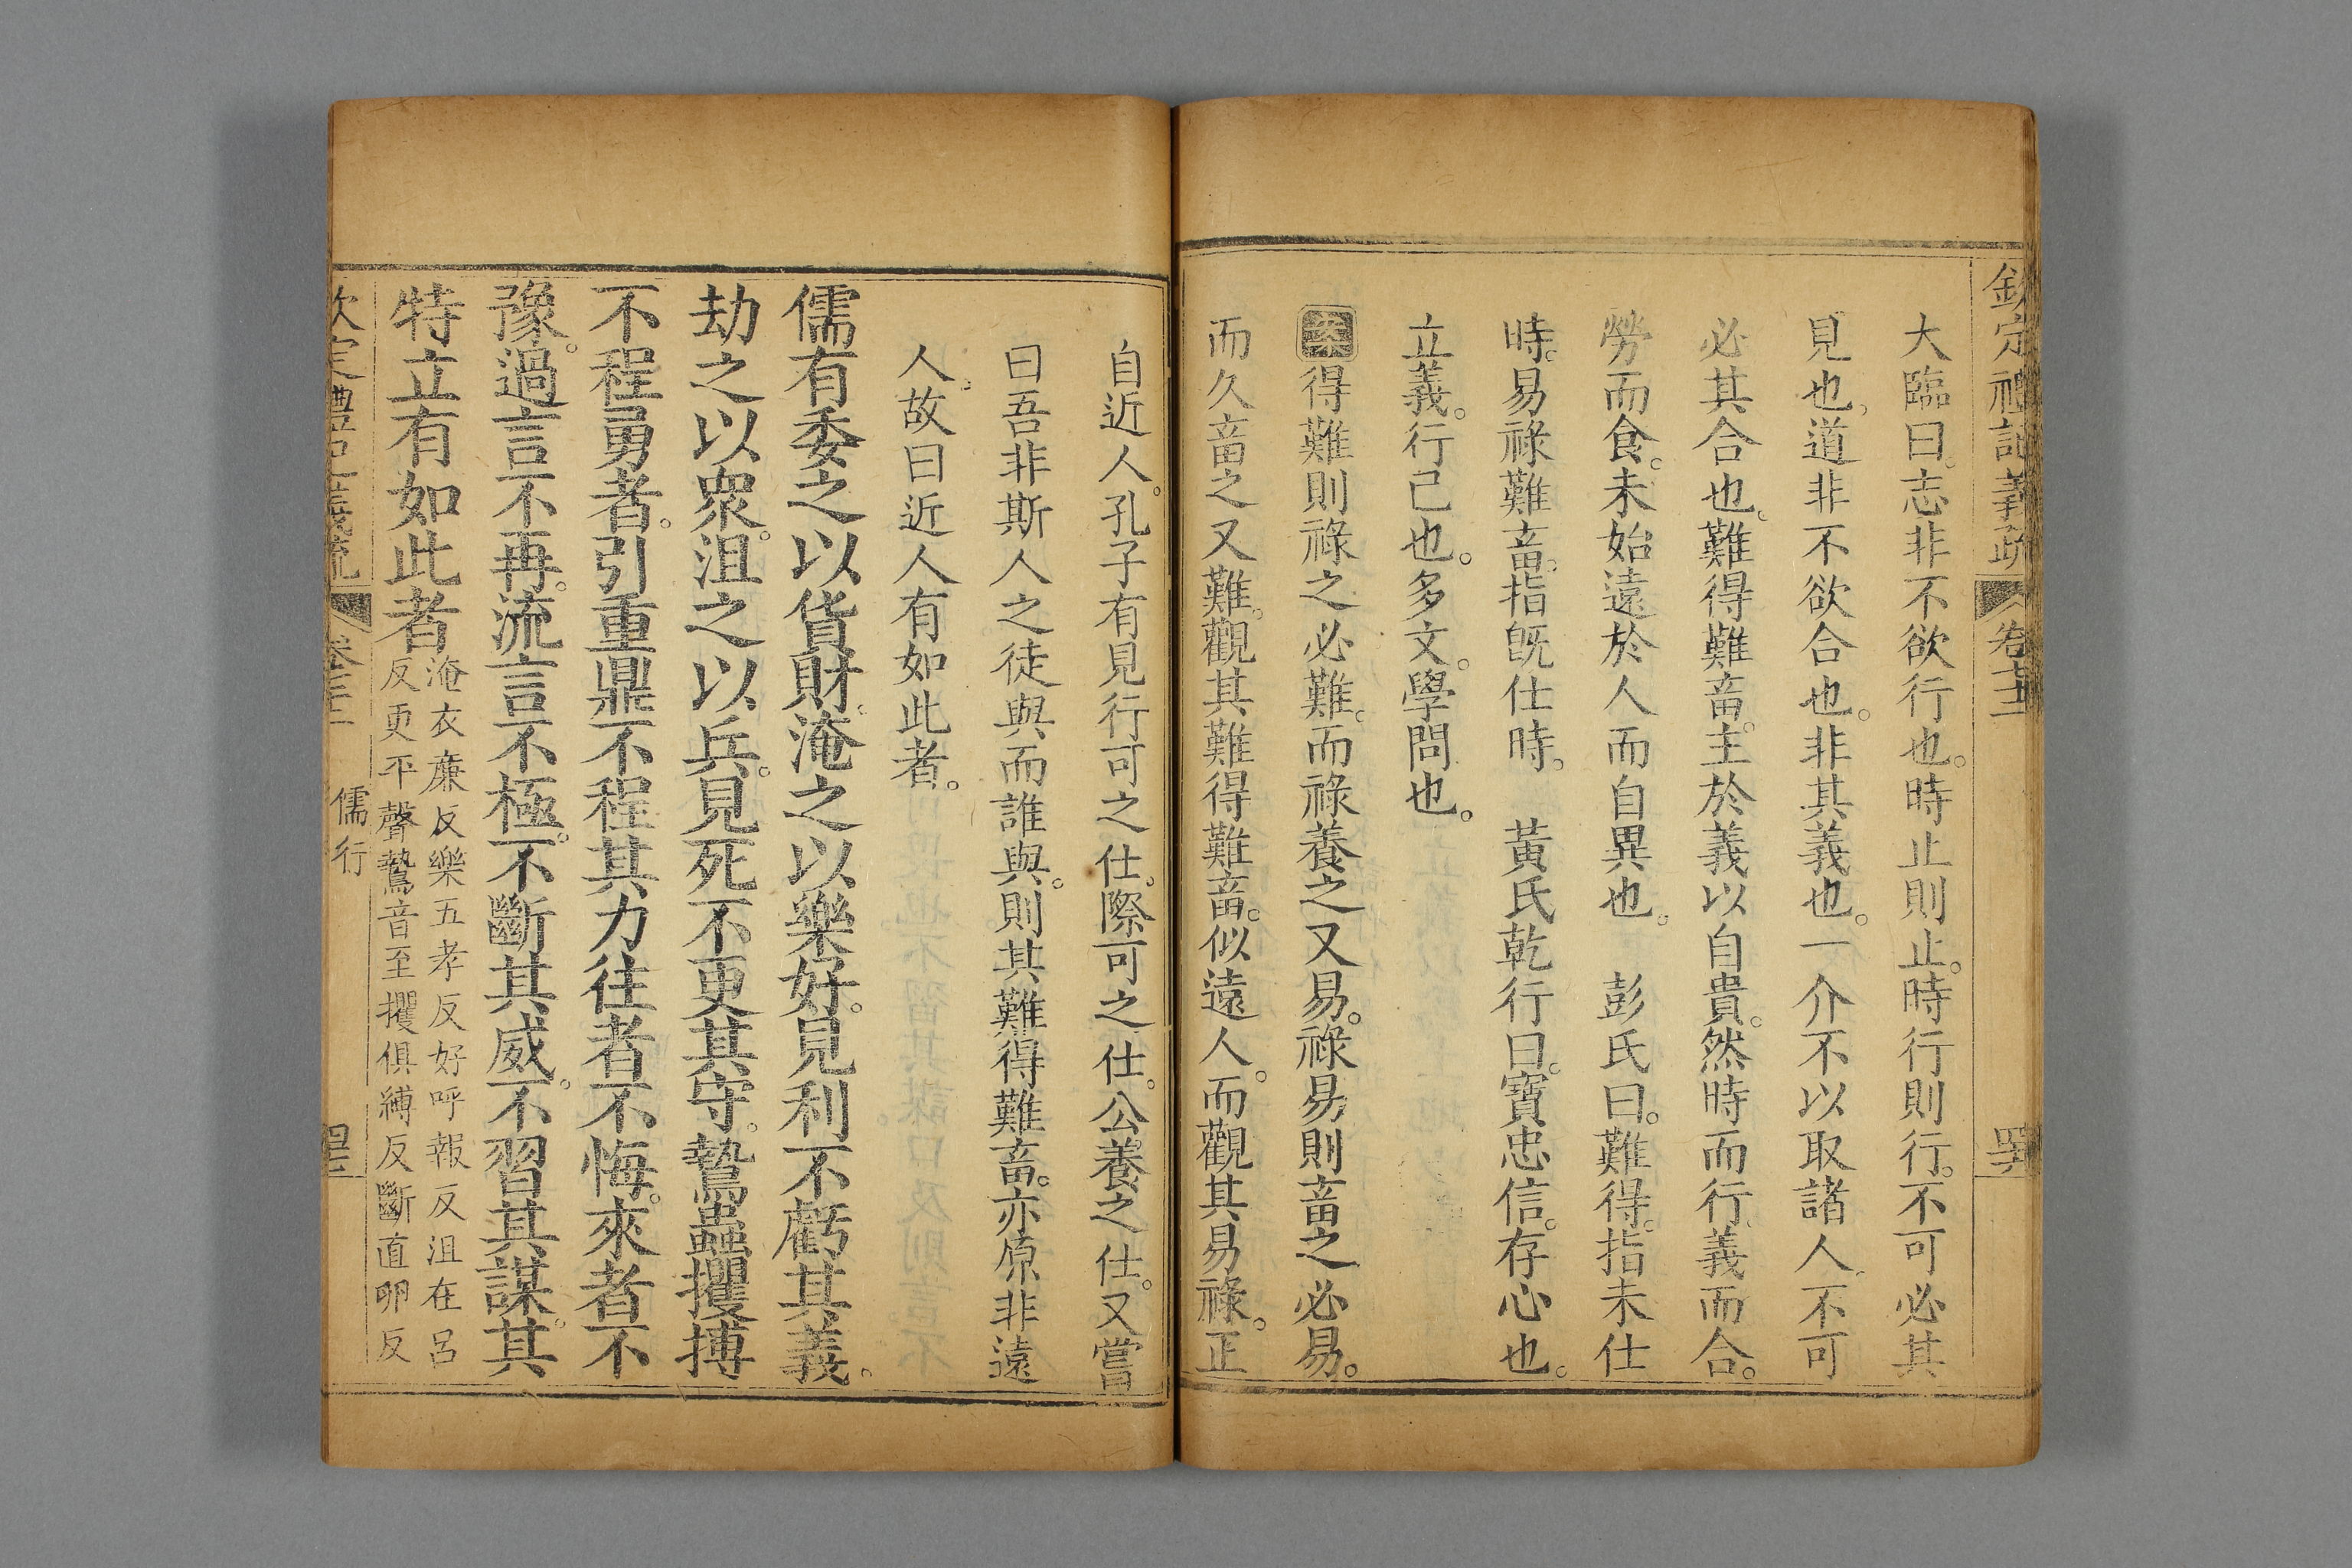 欽定禮記義疏 卷七十二
大臨曰。志非不欲行也。時止則止。時行則行。不可必其
見也。道非不欲合也。非其義也。一介不以取諸人。不可
必其合也。難得難畜。主於義以自貴。然時而行。義而合。
勞而食。未始遠於人而自異也。 彭氏曰。難得。指未仕
時。易祿難畜。指既仕時。 黃氏乾行曰。寶忠信。存心也。
立義。行己也。多文。學問也。
案得難則祿之必難。而祿養之又易。祿易則畜之必易。
而久畜之又難。觀其難得難畜。似遠人。而觀其易祿。正
自近人。孔子有見行可之仕。際可之仕。公養之仕。又嘗
曰吾非斯人之徒與而誰與。則其難得難畜。亦原非遠
人。故曰近人有如此者。
儒有委之以貨財。淹之以樂好。見利不虧其義。
劫之以衆。沮之以兵。見死不更其守。鷙蟲攫搏
不程勇者。引重鼎不程其力。往者不悔。來者不
豫。過言不再。流言不極。不斷其威。不習其謀。其
特立有如此者
淹衣廉反樂五孝反好呼報反沮在呂
反更平聲鷙音至攫俱縛反斷直卵反
儒行